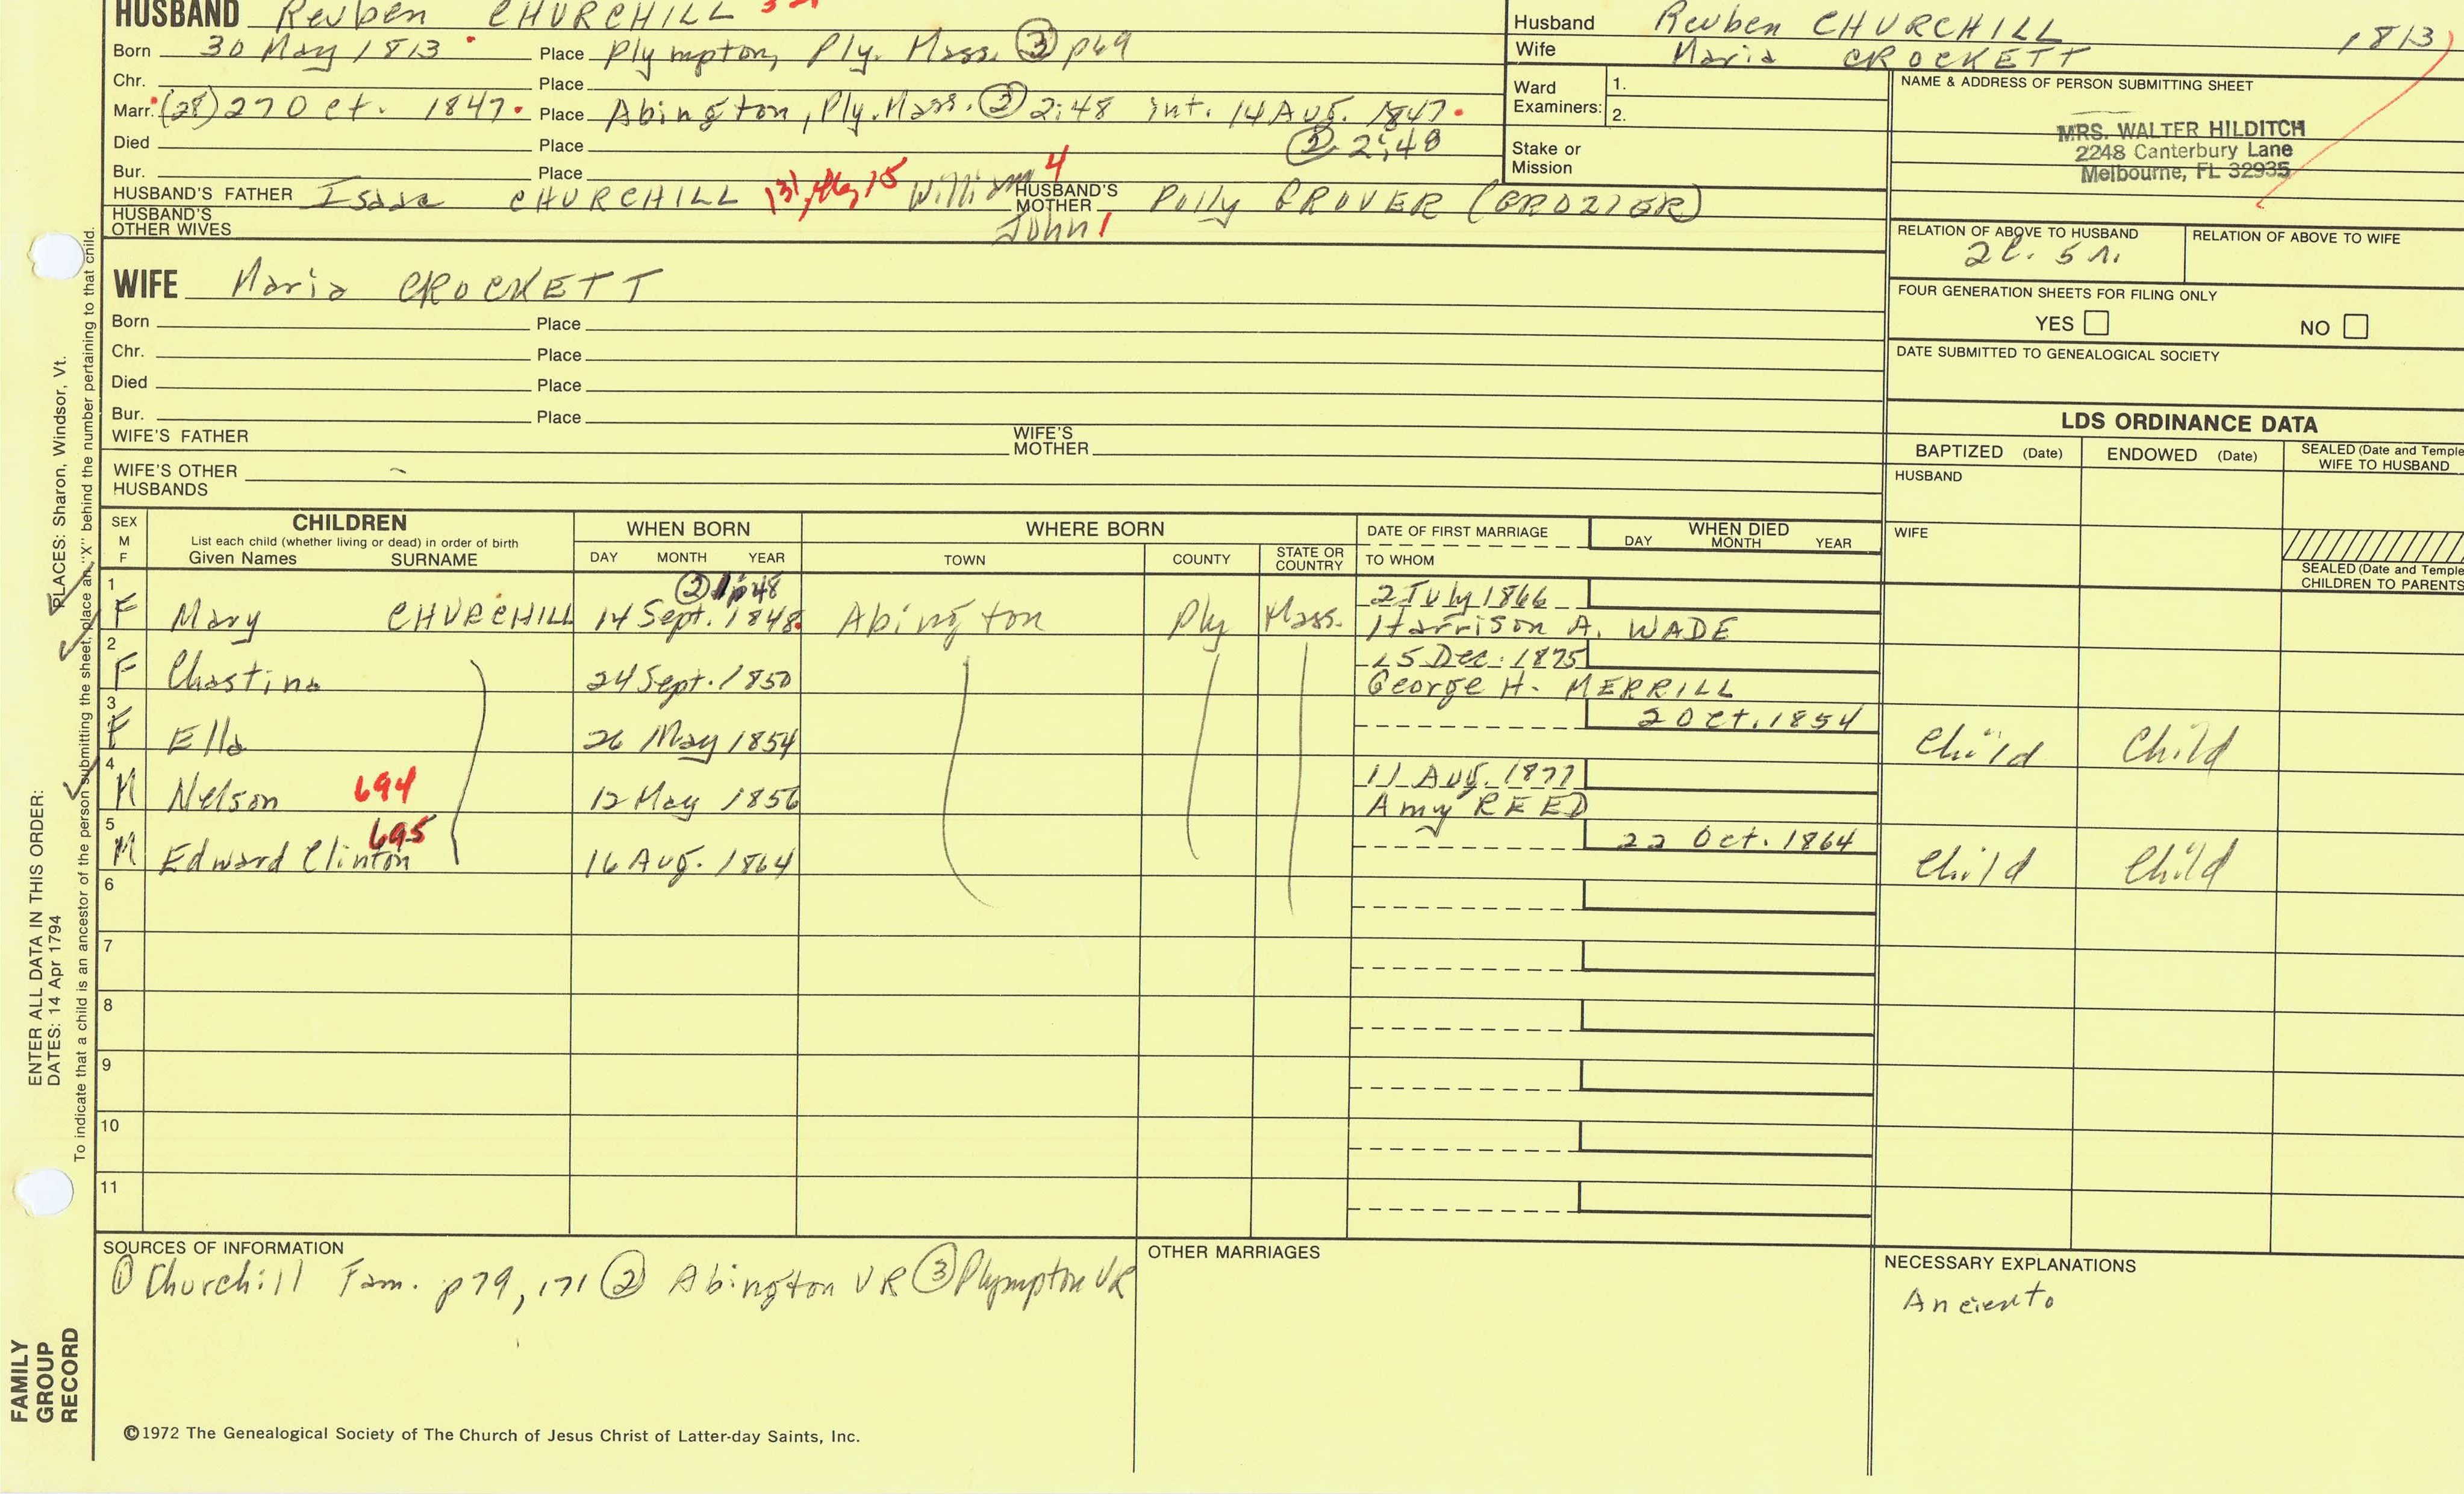 HUSBAND Reuben CHURCHILL
Born 30 May 1813 Place Plympton, Ply. Mass. ③ p69
Chr. Place
Marr. (28) 27 Oct. 1847. Place Abington, Ply. Mass. ② 2:48 int. 14 Aug. 1847.
② 2:48
Died Place
Bur. Place
HUSBAND'S FATHER Isaac CHURCHILL William 4 HUSBAND'S MOTHER Polly GROVER (CROZIER)
HUSBAND'S OTHER WIVES John 1
Husband Reuben CHURCHILL 1813
Wife Maria CROCKETT
Ward Examiners: 1.
2.
Stake or Mission
NAME & ADDRESS OF PERSON SUBMITTING SHEET
MRS. WALTER HILDITCH
2248 Canterbury Lane
Melbourne, FL 32935
RELATION OF ABOVE TO HUSBAND RELATION OF ABOVE TO WIFE
2c. 5r.
FOUR GENERATION SHEETS FOR FILING ONLY
YES NO
DATE SUBMITTED TO GENEALOGICAL SOCIETY
WIFE Maria CROCKETT
Born Place
Chr. Place
Died Place
Bur. Place
WIFE'S FATHER WIFE'S MOTHER
WIFE'S OTHER HUSBANDS
LDS ORDINANCE DATA
BAPTIZED (Date) ENDOWED (Date) SEALED (Date and Temple
WIFE TO HUSBAND
HUSBAND
WIFE
SEALED (Date and Temple
CHILDREN TO PARENTS
SEX M F
CHILDREN
List each child (whether living or dead) in order of birth
Given Names SURNAME
WHEN BORN
DAY MONTH YEAR
WHERE BORN
TOWN COUNTY STATE OR COUNTRY
DATE OF FIRST MARRIAGE
TO WHOM
WHEN DIED
DAY MONTH YEAR
② 1p48
1 F Mary CHURCHILL 14 Sept. 1848. Abington Ply Mass. 2 July 1866
Harrison A. WADE
2 F Chastina 24 Sept. 1850 15 Dec. 1875
George H. MERRILL
3 F Ella 26 May 1854 2 Oct. 1854 Child Child
4 M Nelson 694 12 May 1856 11 Aug. 1877
Amy REED
5 M Edward Clinton 695 16 Aug. 1864 22 Oct. 1864 Child Child
6
7
8
9
10
11
SOURCES OF INFORMATION
① Churchill Fam. p79, 171 ② Abington VR ③ Plympton VR
OTHER MARRIAGES
NECESSARY EXPLANATIONS
©1972 The Genealogical Society of The Church of Jesus Christ of Latter-day Saints, Inc.
FAMILY
GROUP
RECORD
ENTER ALL DATA IN THIS ORDER:
DATES: 14 Apr 1794
PLACES: Sharon, Windsor, Vt.
To indicate that a child is an ancestor of the person submitting the sheet, place an "X" behind the number pertaining to that child.